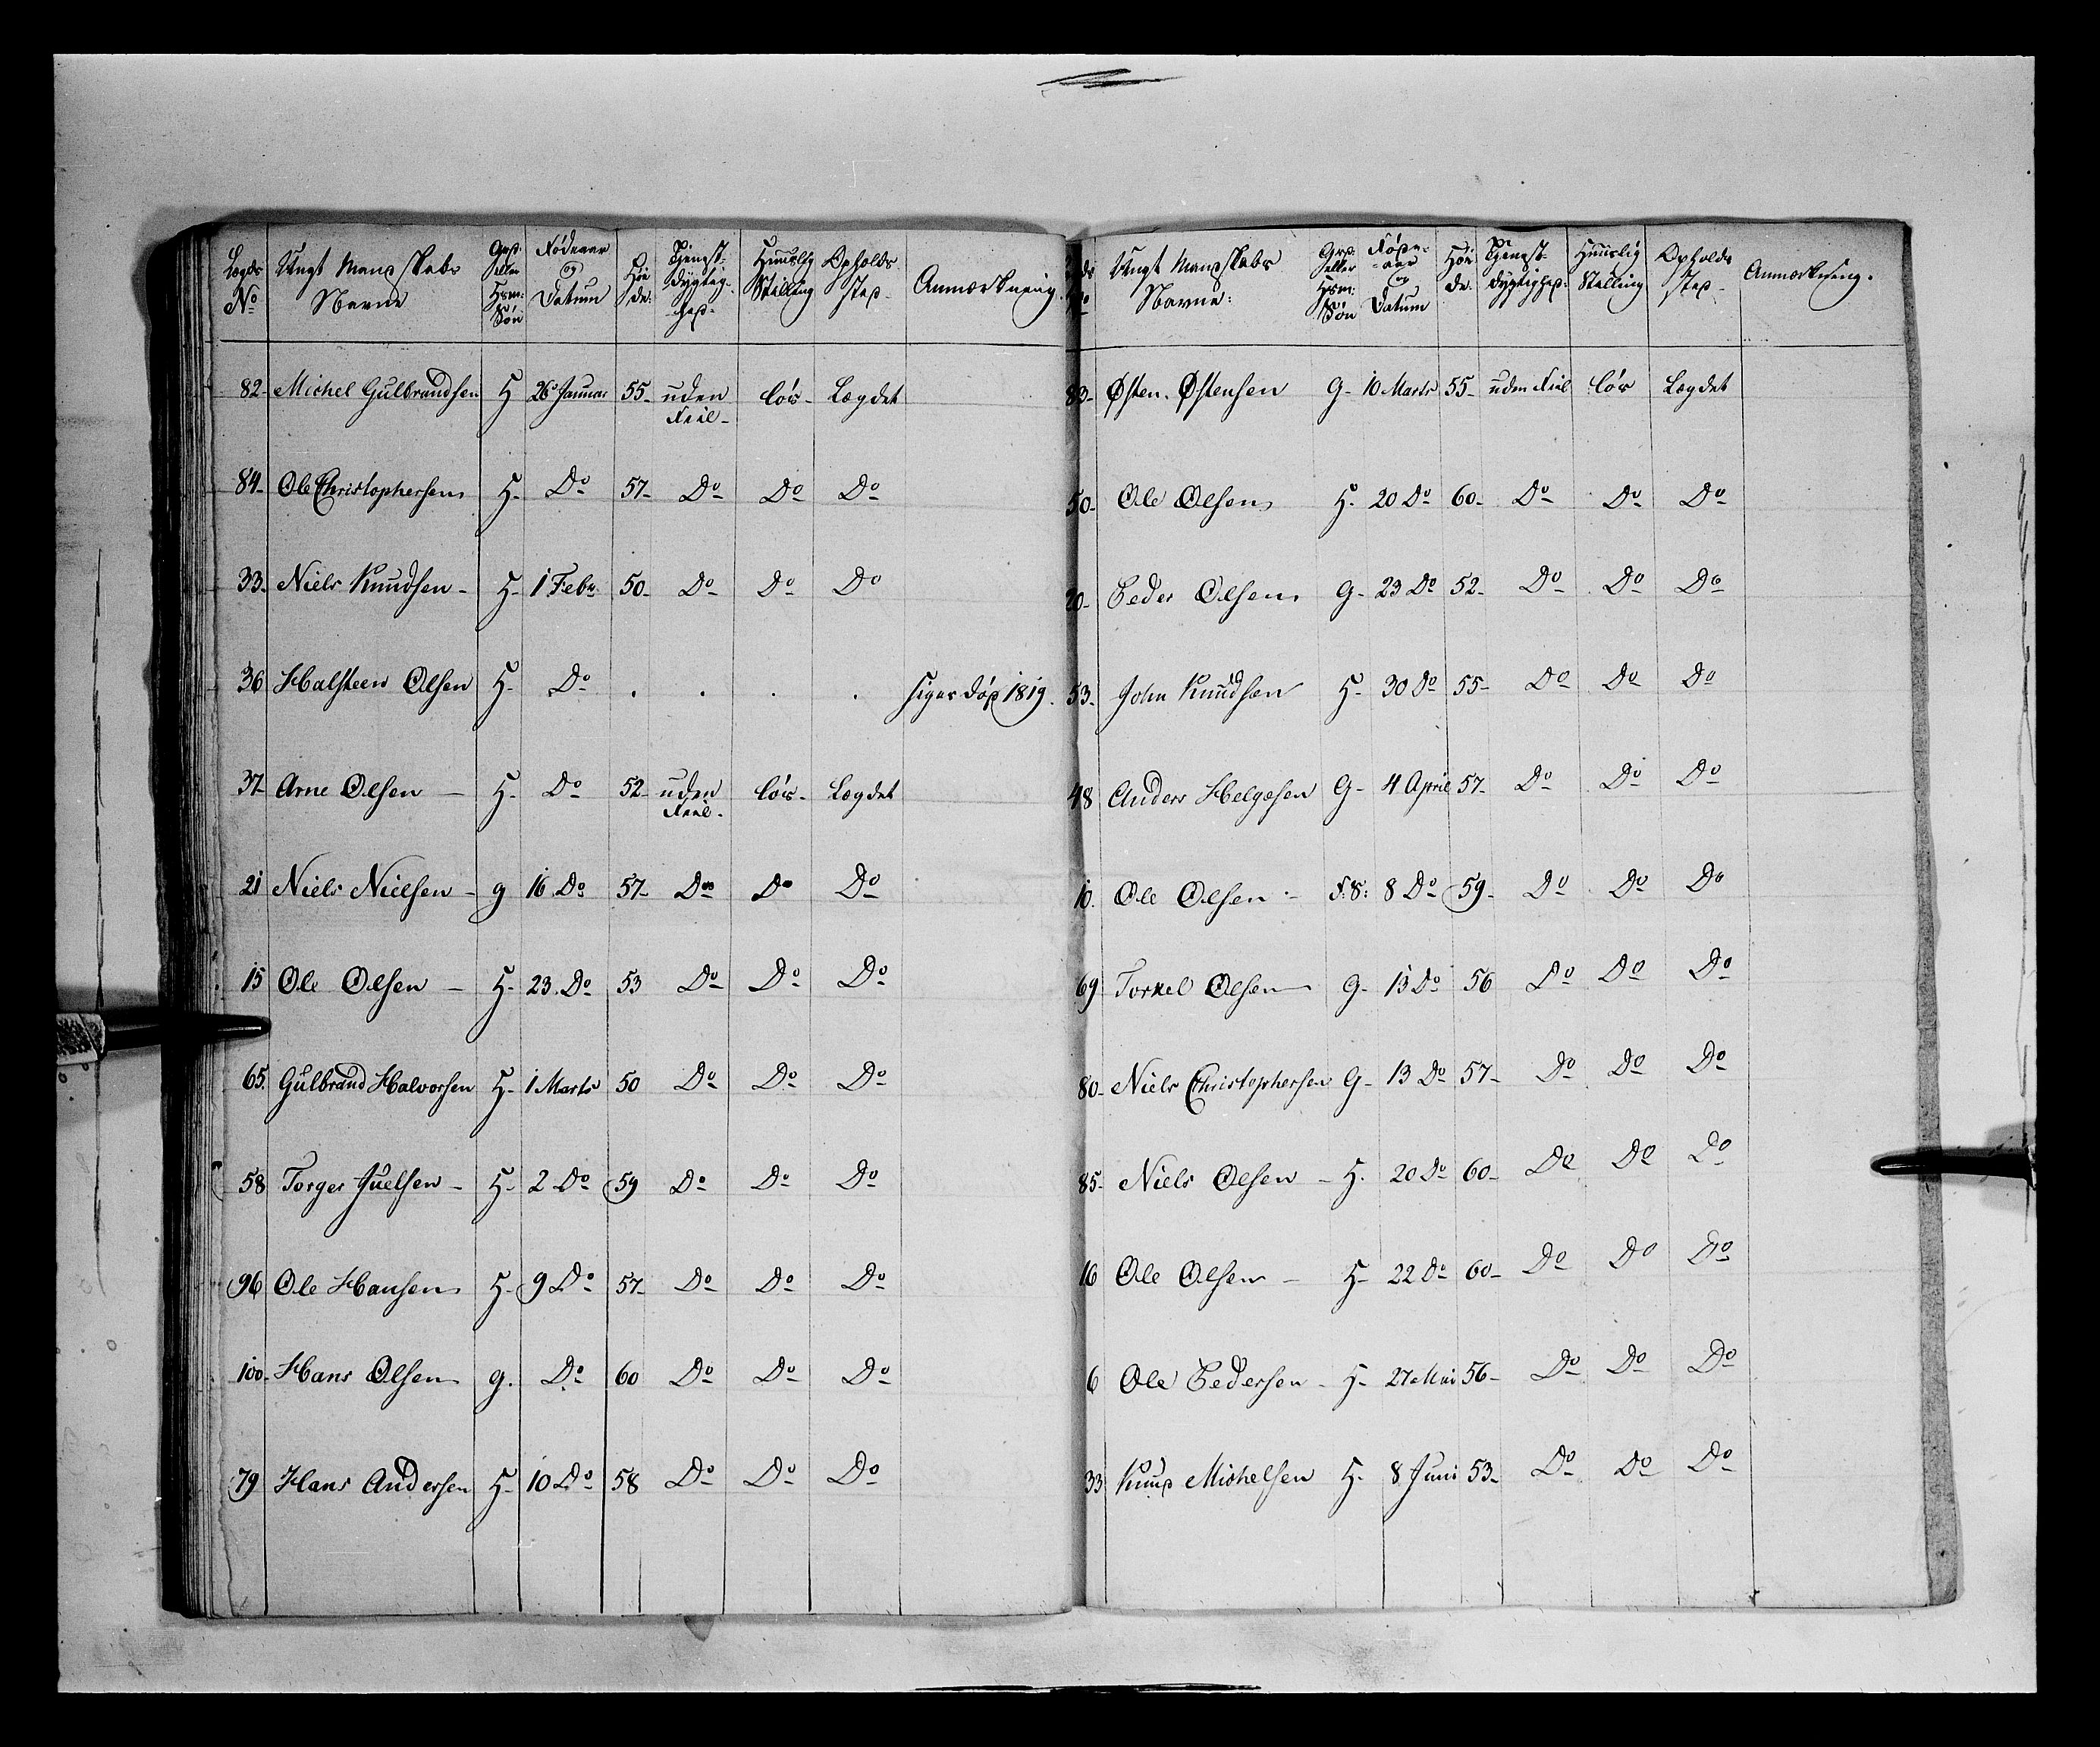 Lægds No | Ungt Mandskabs Navne | Grd. eller Hsm: Søn | Fødeaar og Datum | Høi de. | Tienst- dygtig- hed- | Huuslig Stilling | Opholds sted- | Anmærkning.
82- Michel Gulbrandsen H 26 Januar 55- uden Feil- løs- Lægdet
84- Ole Christophersen H- Do 57- Do Do Do
33- Niels Knudsen- H- 1 Febr. 50- Do Do Do
36 Halsteen Olsen H- Do . . . . siges død 1819.
37- Arne Olsen - H- Do 52- uden Feil. løs- Lægdet
21 Niels Nielsen- g 16 Do 57- Do Do Do
15 Ole Olsen - H- 23 Do 53 Do Do Do
65. Gulbrand Halvorsen H- 1 Marts 50 Do Do Do
58 Torger Juelsen- H- 2 Do 59 Do Do Do
96 Ole Hansen H- 9 Do 57- Do Do Do
100- Hans Olsen g. Do 60 Do Do Do
79 Hans Andersen H- 10 Do 58 Do Do Do
Ungt Mandskabs Navne: | Grd. eller Hsm: Søn | Føde- aar og Datum | Høi de. | Tienst- dygtighed: | Huuslig Stilling | Opholds sted- | Anmærkning.
83- Østen Østensen G- 10 Marts 55- uden Feil løs Lægdet
50- Ole Olsen H- 20 Do 60- Do Do Do
20- Peder Olsen G- 23 Do 52- Do Do Do
53- John Knudsen H- 30 Do 55- Do Do Do
48 Anders Helgesen G- 4 April 57- Do Do Do
10. Ole Olsen - 8 Do 59- Do Do Do
69 Torkel Olsen G- 13 Do 56 Do Do Do
80- Niels Christophersen G- 13 Do 57- Do Do Do
85- Niels Olsen - H. 20 Do 60- Do Do Do
16 Ole Olsen - H- 22 Do 60- Do Do Do
6 Ole Pedersen- H- 27 Mai 56- Do Do Do
33 Knud Michelsen H- 8 Juni 53- Do Do Do